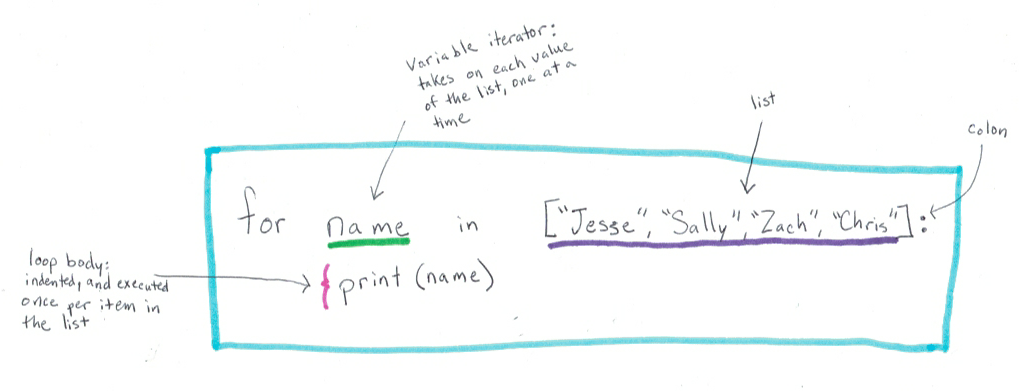 Variable iterator:
takes on each value
of the list, one at a
time
list
colon
for name in ["Jesse", "Sally", "Zach", "Chris"]:
loop body:
indented, and executed
once per item in
the list
{ print (name)